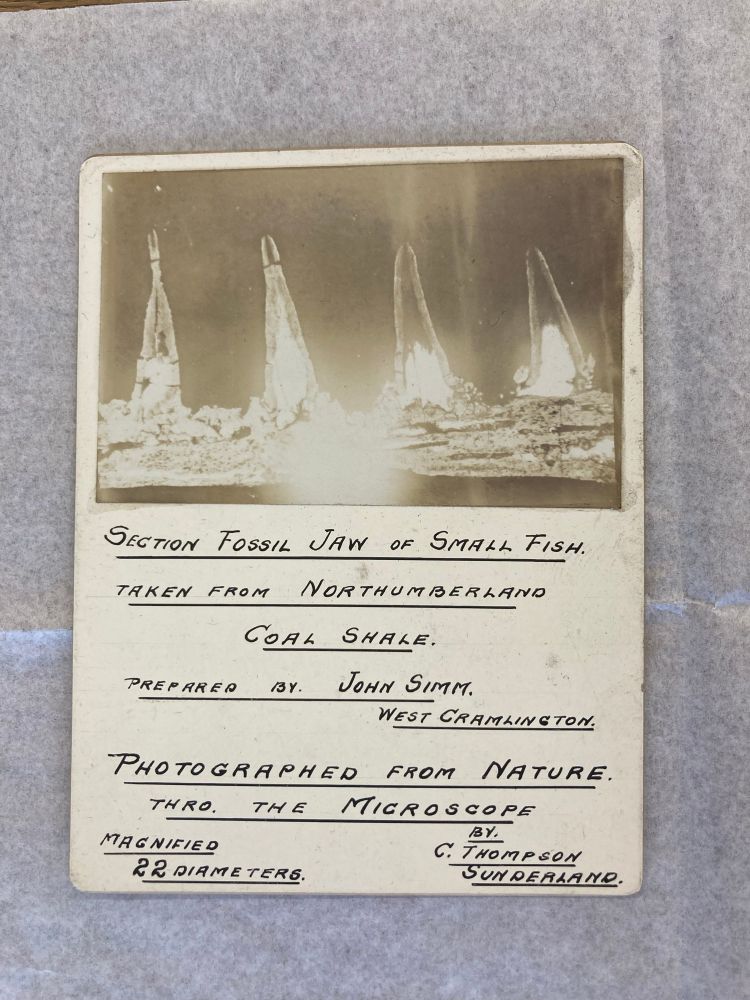 SECTION FOSSIL JAW OF SMALL FISH.
TAKEN FROM NORTHUMBERLAND
COAL SHALE.
PREPARED BY. JOHN SIMM.
WEST CRAMLINGTON.
PHOTOGRAPHED FROM NATURE.
THRO. THE MICROSCOPE
BY.
MAGNIFIED C. THOMPSON
22 DIAMETERS. SUNDERLAND.